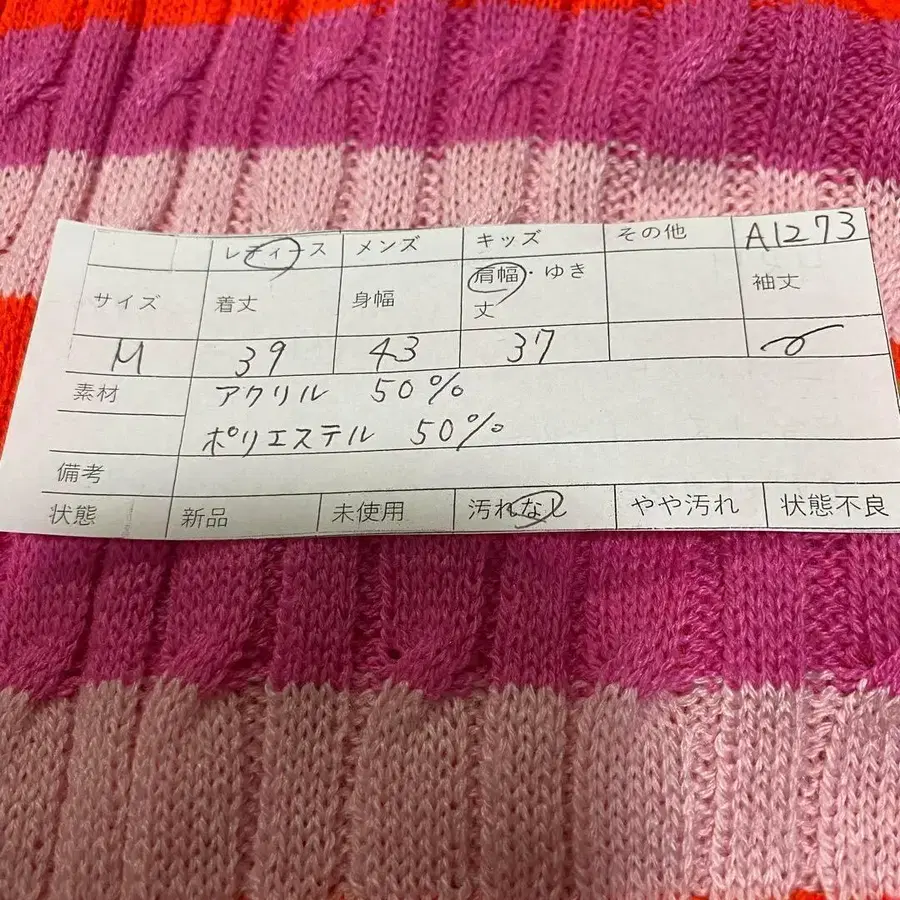 レディース メンズ キッズ その他 A1273
サイズ 着丈 身幅 肩幅・ゆき丈 袖丈
M 39 43 37
素材 アクリル 50%
ポリエステル 50%
備考
状態 新品 未使用 汚れなし やや汚れ 状態不良